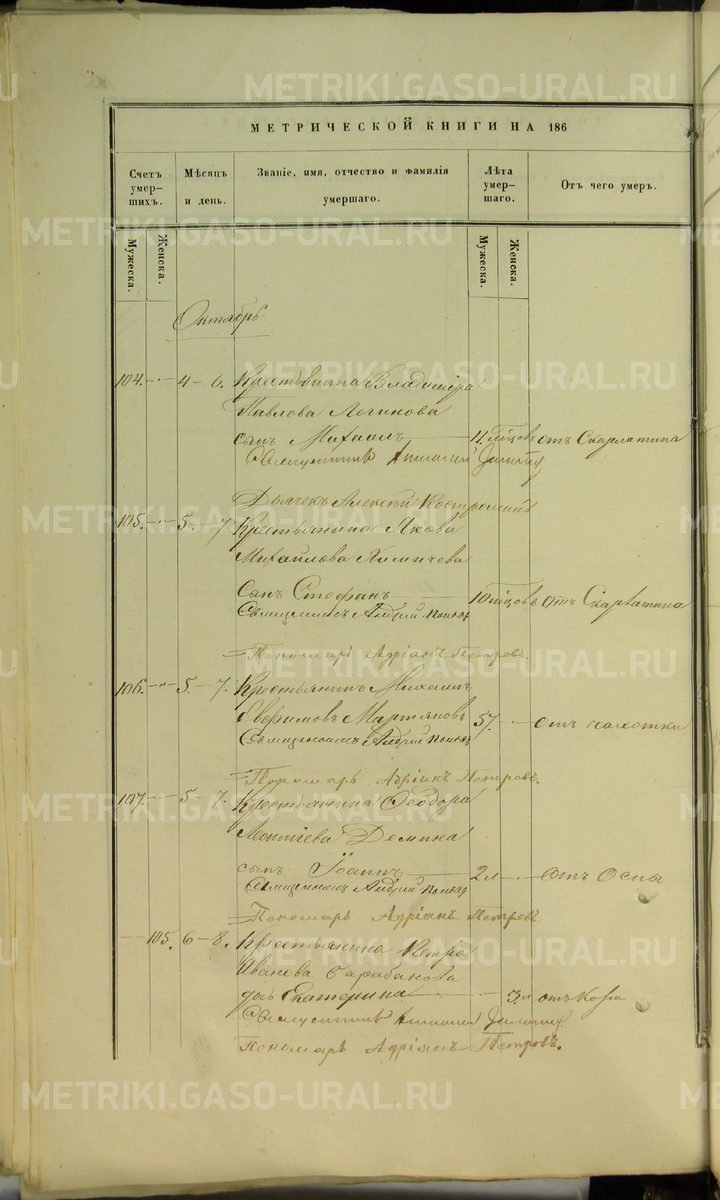 METRIKI.GASO-URAL.RU
МЕТРИЧЕСКОЙ КНИГИ НА 186
Счетъ умер-шихъ.
Мѣсяцъ и день.
Званіе, имя, отчество и фамилія умершаго.
Лѣта умер-шаго.
Отъ чего умеръ.
Мужеска.
Женска.
Мужеска.
Женска.
Октябрь.
104. 4 – 6. Крестьянина Владимира
Павлова Логинова
сынъ Михаилъ 11 мѣсцовъ отъ Скарлатина
Дьячекъ Алексѣй
105. 5. – 7. Крестьянина Якова
Михайлова
Сынъ Стефанъ 10 мѣсцовъ отъ Скарлатина
Священникъ Андрей
Пономарь Адріанъ Петровъ.
106. 5. – 7. Крестьянинъ Михаилъ
Ефимовъ Мартяновъ 57. отъ чахотки
Священникъ Андрей
Пономарь Адріанъ Петровъ.
107. 5 – 7. Крестьянина Ѳеодора
Леонтіева Демина
сынъ Іоаннъ 2 л отъ Оспы
Священникъ Андрей
Пономарь Адріанъ Петровъ
105. 6 – 8. Крестьянина Петра
Иванова Барабанова
дочь Екатерина 3 л отъ Кори
Пономарь Адріанъ Петровъ.